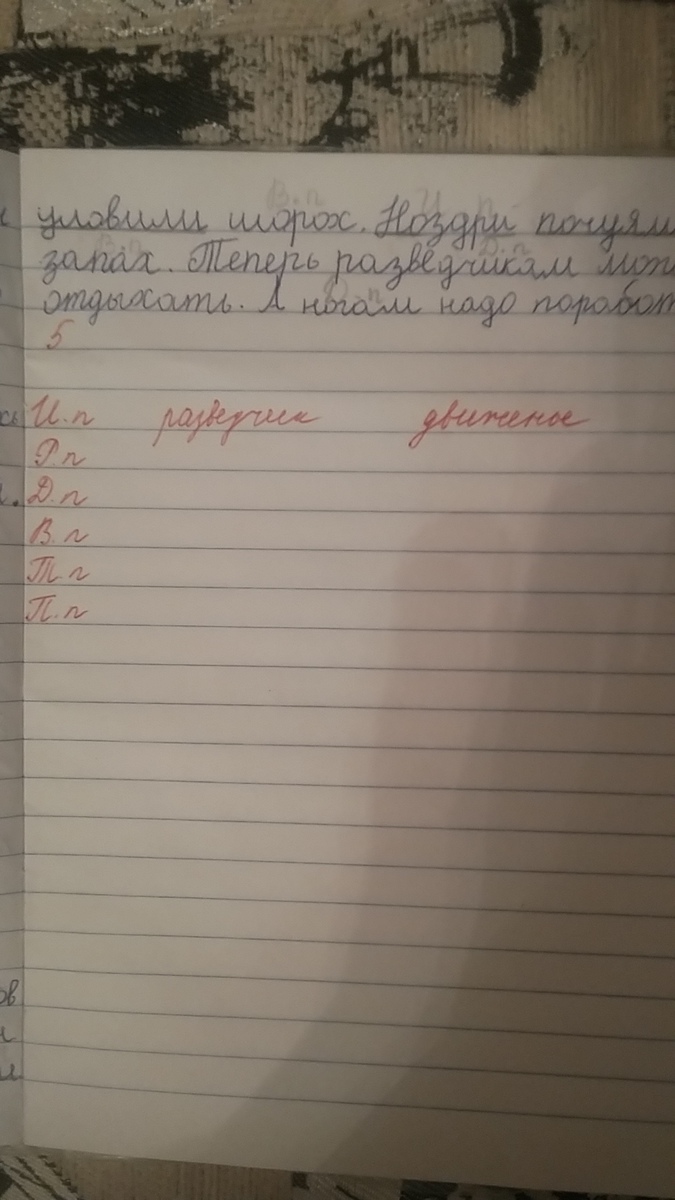 В. п И. п
уловили шорох. Ноздри почуям
В. п Д. п
запах. Теперь разведчикам мож
Д. п
отдыхать. А ногам надо поработ
5
сь И. п разведчик движенье
Р. п
Д. п
В. п
Т. п
П. п
ов